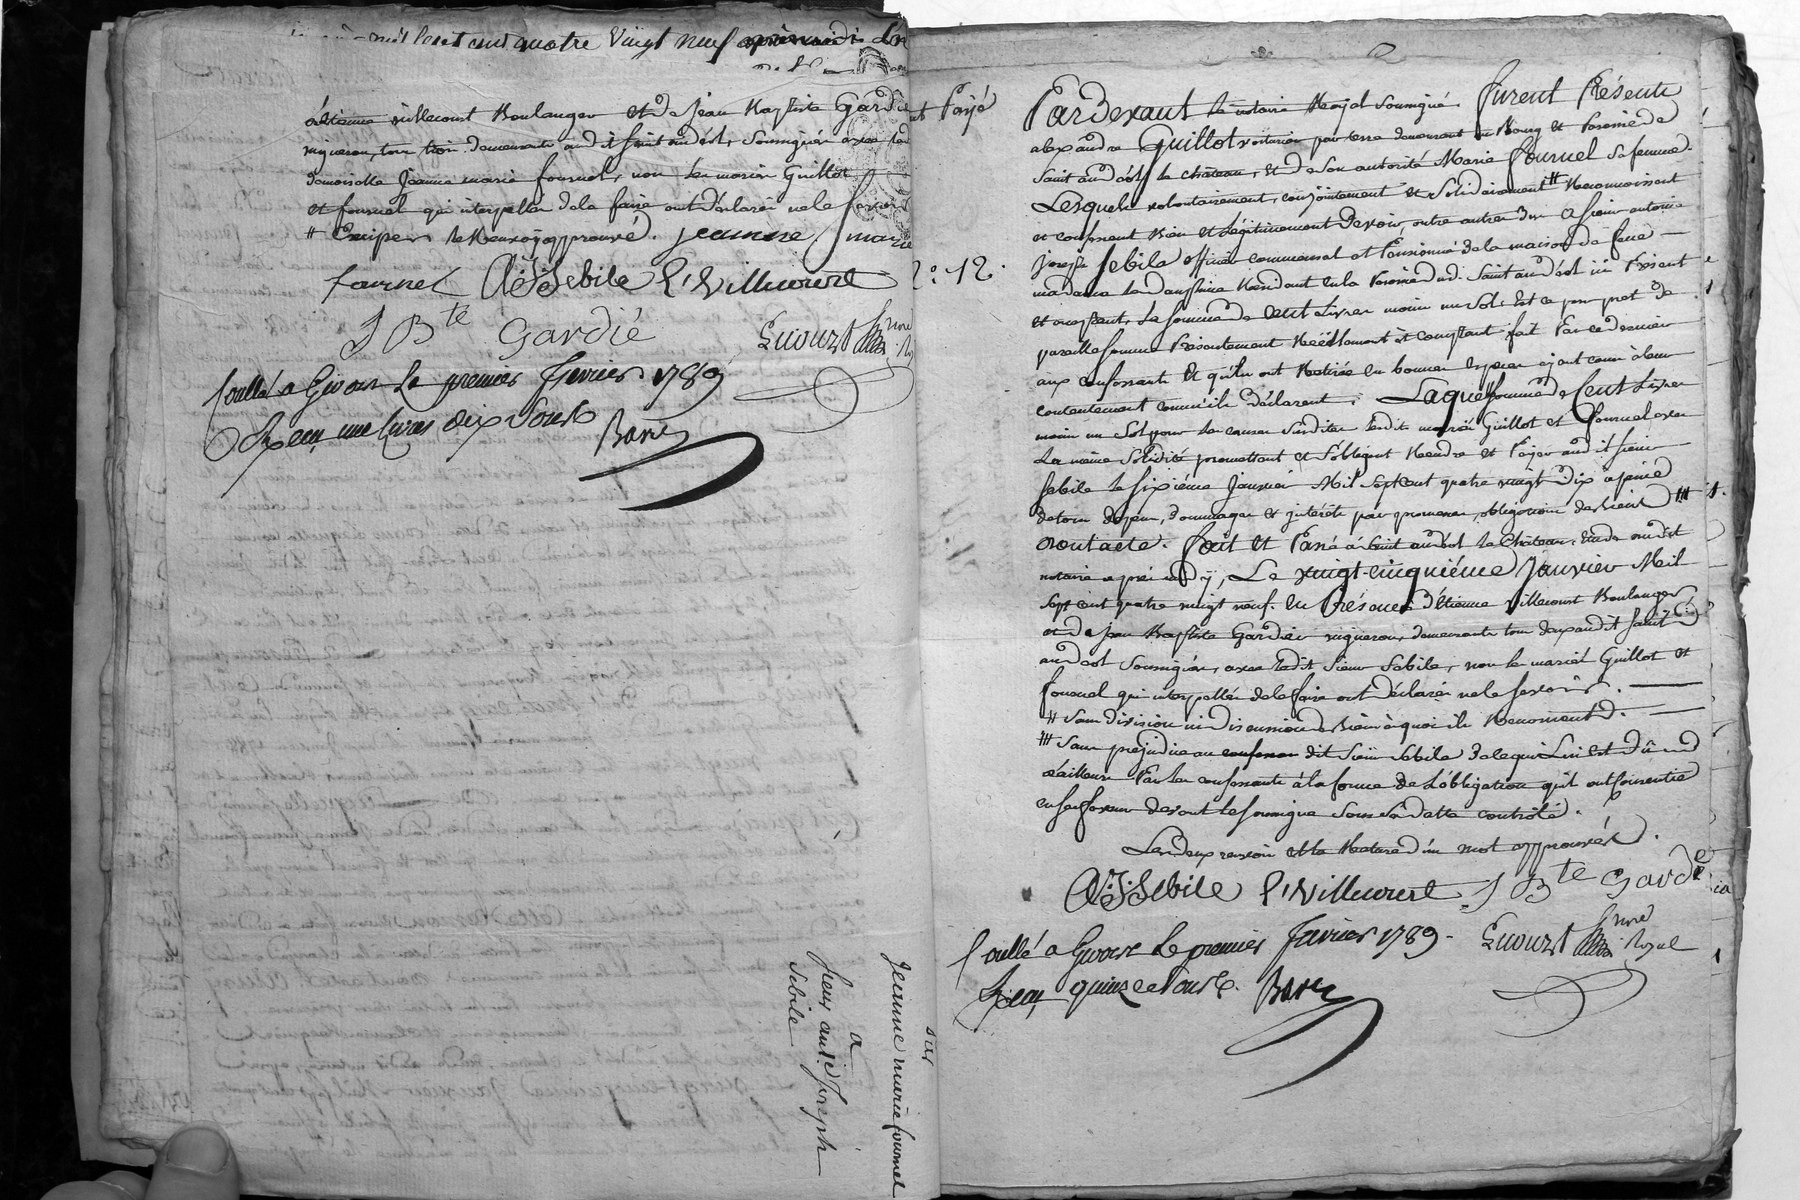 mil sept cent quatre Vingt neuf après midi En
étienne villecourt Boulanger et de jean Baptiste Gardié
vigneron, tous trois demeurants audit saint andéol, soussignés avec lad
demoiselle Jeanne marie fournel, non les mariés Guillot
et fournel qui interpellés de le faire ont déclarés ne le savoir
# Exciper le Renvoy approuvé. jeanne marie
fournel AJSebile E'Villecourt
J Bte Gardié Guourst nre
Coullé a Givors Le premier fevrier 1789
Reçu une livres dix sous Barry
sur
Jeanne marie fournel
a
sieur ant.e Joseph
Sebile
et Payé
n.o 12.
Pardevant le notaire Royal soussigné. furent Présents
alexandre Guillot voiturier par terre demeurant au Bourg et Paroisse de
saint andéol le château, et de son autorité Marie fournel sa femme.
Lesquels volontairement, conjointement et solidairement # Reconnoissent
et confessent bien et légitimement devoir, outre autre dû a sieur antoine
joseph Sebile officier commensal et Pensionné de la maison de feue
madame la dauphine Résidant en la Paroisse dud. saint andéol ici Présent
et acceptant, la somme de cent Livres moins un sol. Est ce pour pret de
pareille somme Présentement Réellement et comptant fait Par ce dernier
aux confessants Et qu'ils ont Retirée en bonnes especes ayant cours à leur
contentement comm'ils déclarent. Laquelle somme de Cent Livres
moins un sol pour les causes susdites lesdits mariés Guillot et fournel avec
La même solidité promettent et s'obligent Rendre et Payer audit sieur
Sebile le sixième janvier Mil sept cent quatre vingt dix a peine
de tous depens, dommages et interêts par promesses, obligations de biens ///
dont acte. fait et Passé à saint andéol le Château, Etude dudit
notaire après midÿ, Le vingt-cinquième Janvier Mil
sept cent quatre vingt neuf. En Présences d'étienne villecourt Boulanger
et de jean Baptiste Gardié vigneron, demeurants tous deux audit saint
andéol soussignés, avec ledit sieur Sebile, non les mariés Guillot et
fournel qui interpellés de le faire ont déclarés ne le savoir.
# sans division ni discussion de biens à quoi ils Renoncent.
/// sans prejudice au dit sieur Sebile de ce qui Lui est dû
d'ailleurs Par les confessants à la forme de L'obligation qu'il ont souscritte
en sa faveur devant le soussigné sous sa datte contrôlé.
Les deux renvois et la Rature d'un mot approuvés.
AJSebile E'Villecourt J Bte Gardié
Coullé a Givors Le premier fevrier 1789. Guourst nre Royal
Reçu quinze sous. Barry